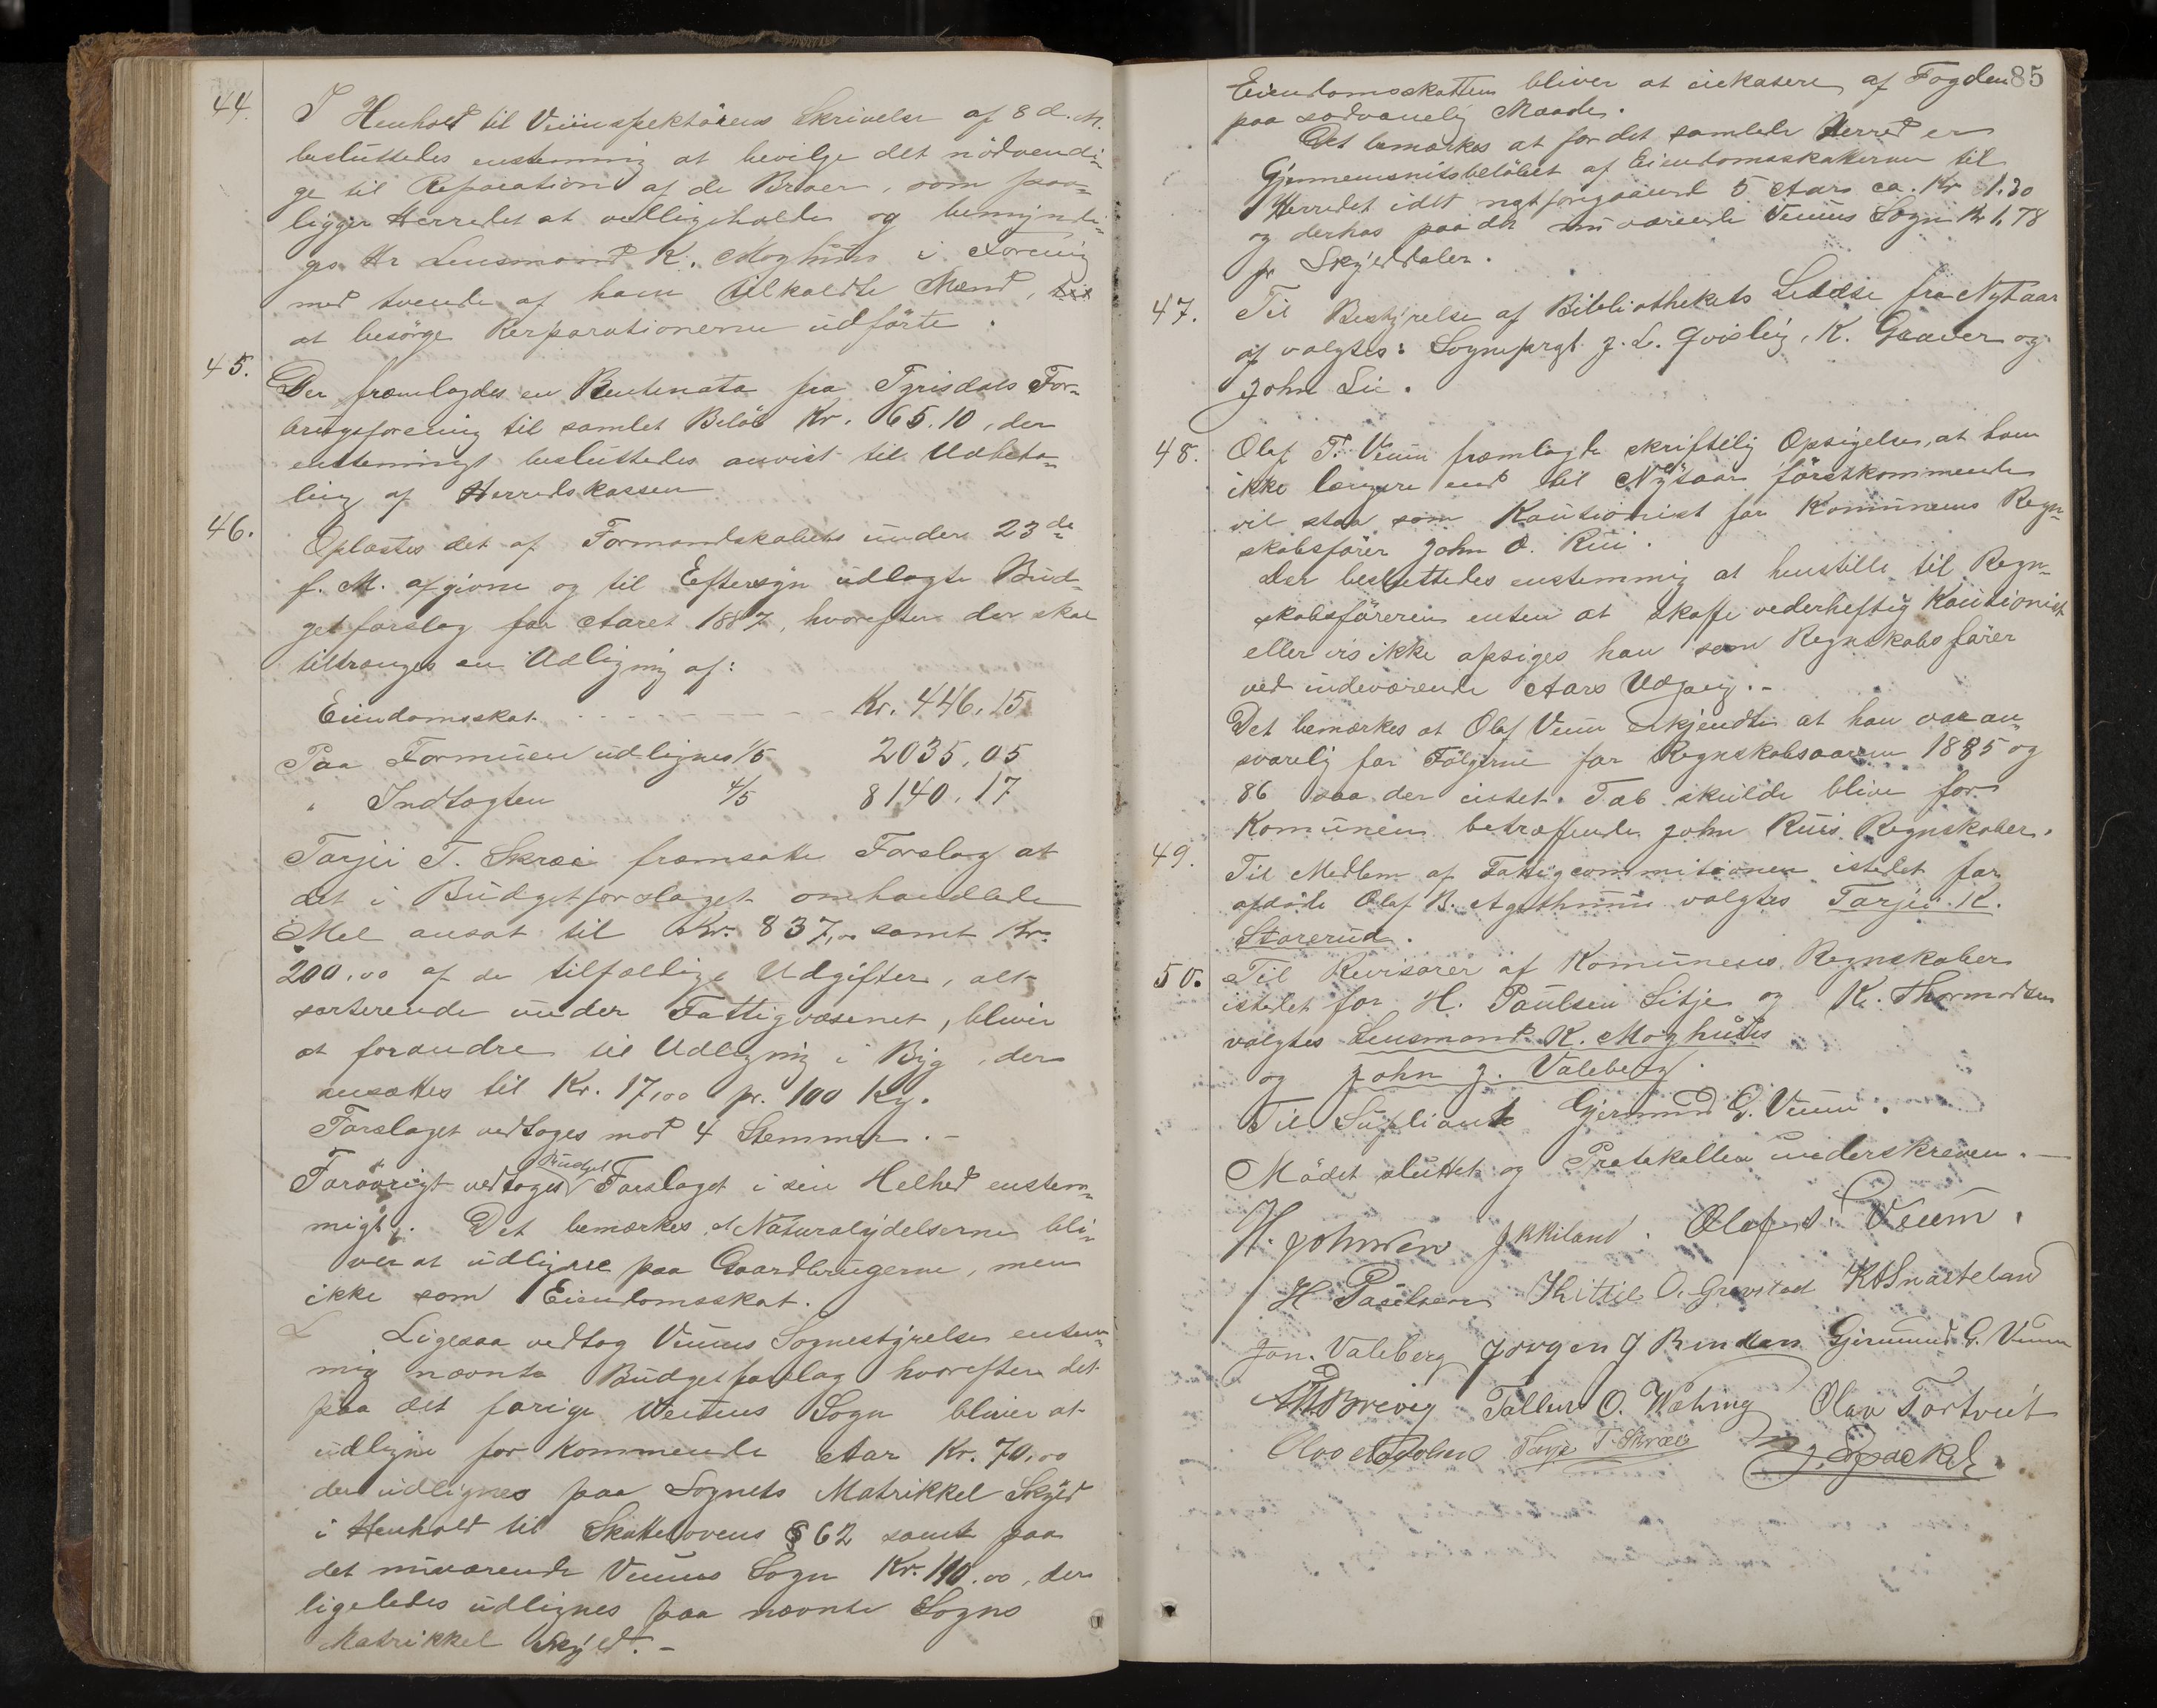 44.
I Henhold til Veiinspektörens Skrivelse af 8 d. M.
besluttedes enstemmig at bevilge det nödvendi-
ge til Reparation af de Broer, som paa-
ligger Herredet at vedligeholde og bemyndi-
ges Hr Lensmand K. Moghuus i Forening
med tvende af ham tilkaldte Mænd,
at besörge Reparationerne udförte.
45.
Der fremlagdes en Rentenota fra Tyrisdals For-
brugsforening til samlet Belöb Kr. 65.10, der
enstemmigt besluttedes anvist til Udbeta-
ling af Herredskassen
46.
Oplæstes det af Formandskabets under 23de
f. M. afgivne og til Eftersyn udlagte Bud-
getforslag for Aaret 1887, hvorefter der skal
tiltrænges en Udligning af:
Eiendomsskat - - - - - - - Kr. 446,15
Paa Formuen udlignes 1/5 2035,05
" Indtægten 4/5 8140,17
Tarjei T. Skræi fremsatte Forslag at
det i Budgetforslaget omhandlede
Mel ansat til Kr. 837,00 samt Kr.
200,00 af de tilfældige Udgifter, alt
sorterende under Fattigvæsenet, bliver
at forandre til Udligning i Byg, der
ansættes til Kr. 17,00 pr. 100 Kg.
Forslaget vedtoges mod 4 Stemmer. -
Forövrigt vedtoges Budget Forslaget i sin Helhed enstem-
migt. Det bemærkes at Naturalydelserne bli-
ver at udligne paa Gaardbrugerne, men
ikke som Eiendomsskat.
Ligesaa vedtog Veums Sognestyrelse enstem-
mig nævnte Budgetforslag hvorefter det
paa det forige Veums Sogn bliver at
udligne for kommende Aar Kr. 70,00
der udlignes paa Sognets Matrikkel Skyld
i Henhold til Skattelovens § 62 samt paa
det nuværende Veums Sogn Kr. 110,00, der
ligeledes udlignes paa nævnte Sogns
Matrikkel Skyld. -
85
Eiendomsskatten bliver at inkasere af Fogden
paa sædvanelig Maade.
Det bemærkes at for det samlede Herred er
Gjennemsnitsbelöbet af Eiendomsskatterne til
Herredet idet næstforegaaend 5 Aars ca. Kr 1.30
og derhos paa det nuværende Veums Sogn Kr 1,78
pr Skylddaler.
47.
Til Bestyrelse af Bibliothekets Ledelse fra Nytaar
af valgtes: Sogneprst J. L. Qvisling, K. Graver og
John Lie.
48.
Olaf T. Veum fremlagde skriftelig Opsigelse, at han
ikke længere end til Nytaar förstkommende
vil staa som Kautionist for Komunens Regn-
skabsförer John O. Rui.
Der besluttedes enstemmig at henstille til Regn-
skabsföreren enten at skaffe vederheftig Kautionist
eller vis ikke opsiges han som Regnskabsförer
ved indeværende Aars Udgang. -
Det bemærkes at Olaf Veum erkjendte at han var an-
svarlig for Fölgerne for Regnskabsaarene 1885 og
86 saa der intet Tab skulde blive for
Komunen betræffende John Ruis Regnskaber.
49.
Til Medlem af Fattigcommisionen istedet for
afdöde Olaf B. Agethuun valgtes Tarjei K.
Storerud.
50.
Til Revisorer af Komunens Regnskaber
istedet for H. Paulsen Sitje og K. Thormodsen
valgtes Lensmand K. Moghuus
og John J. Valeberg.
Til Supliant Gjermund G. Veum.
Mödet sluttet og Protokollen underskreven. -
H. Johnsen Olaf T. Veum.
H Paulsen Kittil O. Gravstad
Jon. Valeberg Jörgen J Rinden Gjermund G. Veum
Brevig O. Olav Tortveit
Tarje T. Skræi